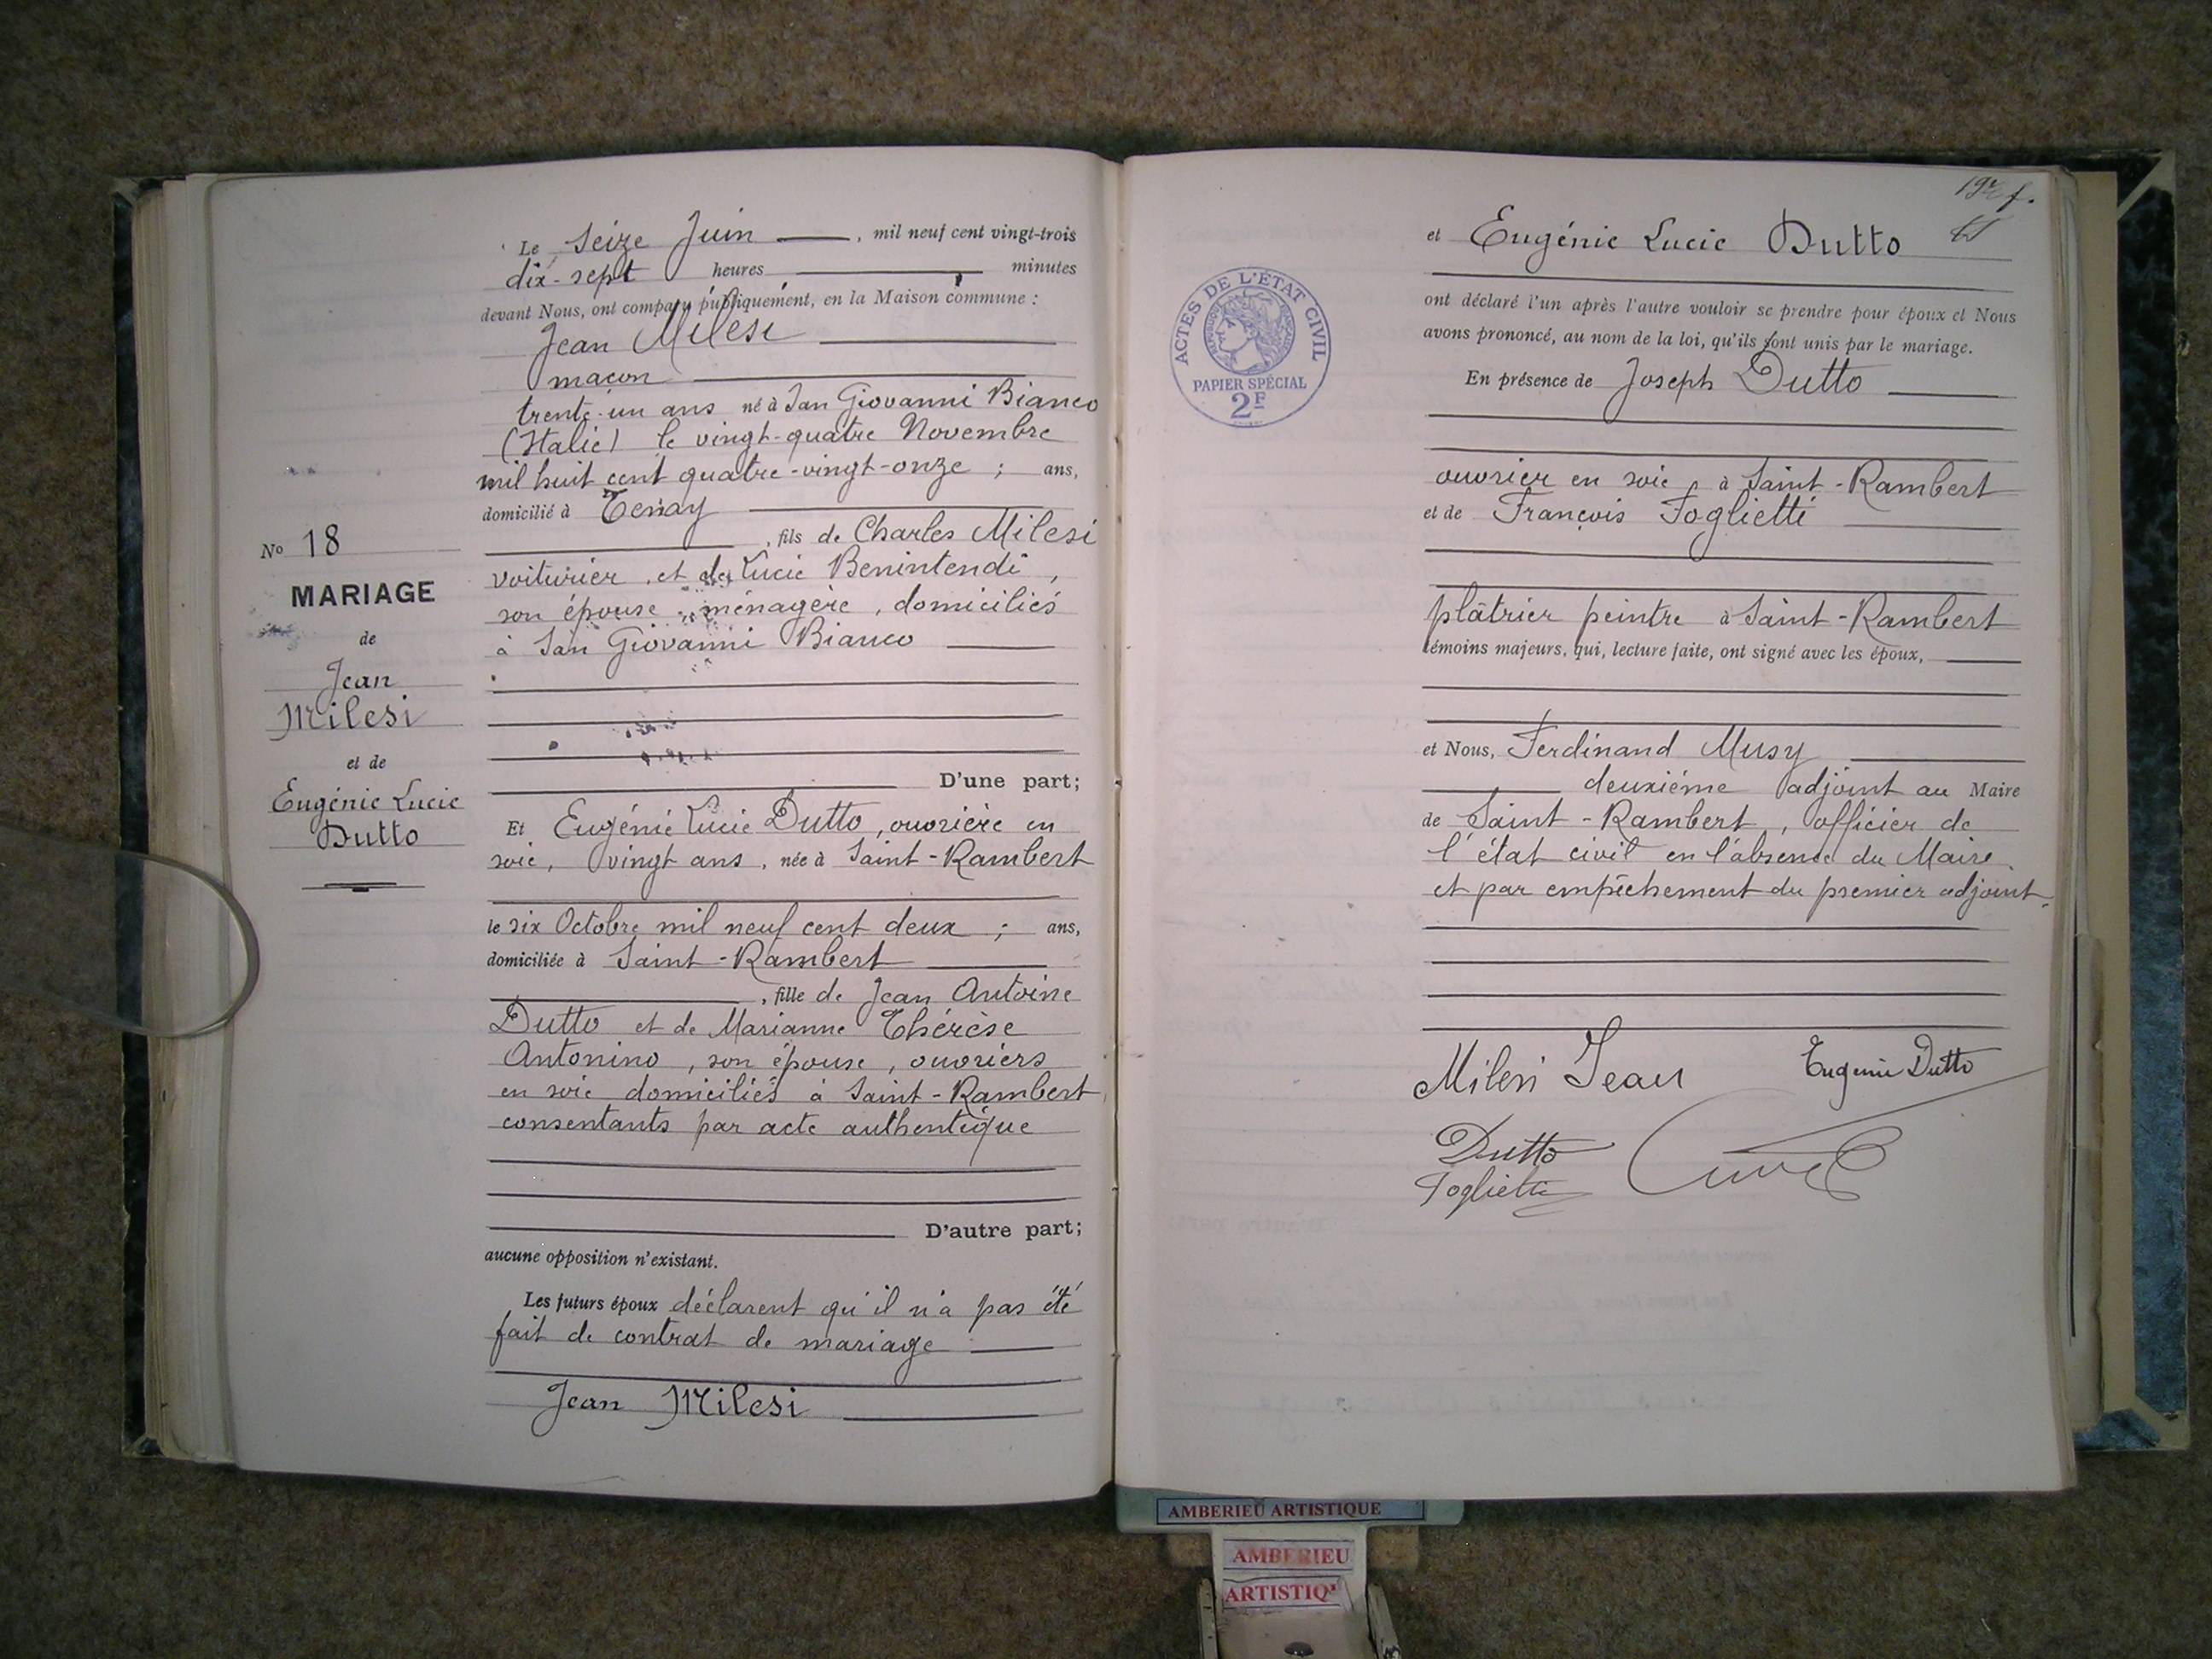 Le seize Juin, mil neuf cent vingt-trois
dix-sept heures minutes
devant Nous, ont comparu publiquement, en la Maison commune :
Jean Milesi
maçon
trente-un ans né à San Giovanni Bianco
(Italie) le vingt-quatre Novembre
mil huit cent quatre-vingt-onze ; ans,
domicilié à Tenay
, fils de Charles Milesi
voiturier, et de Lucie Benintendi,
son épouse, ménagère, domiciliés
à San Giovanni Bianco
D'une part;
No 18
MARIAGE
de
Jean
Milesi
et de
Eugénie Lucie
Dutto
Et Eugénie Lucie Dutto, ouvrière en
soie, vingt ans, née à Saint-Rambert
le six Octobre mil neuf cent deux ; ans,
domiciliée à Saint-Rambert
, fille de Jean Antoine
Dutto et de Marianne Thérèse
Antonino, son épouse, ouvriers
en soie domiciliés à Saint-Rambert,
consentants par acte authentique
D'autre part;
aucune opposition n'existant.
Les futurs époux déclarent qu'il n'a pas été
fait de contrat de mariage
Jean Milesi
et Eugénie Lucie Dutto
ACTES DE L'ÉTAT CIVIL
PAPIER SPÉCIAL
2F
ont déclaré l'un après l'autre vouloir se prendre pour époux et Nous
avons prononcé, au nom de la loi, qu'ils sont unis par le mariage.
En présence de Joseph Dutto
ouvrier en soie, à Saint-Rambert
et de François Foglietti
plâtrier peintre à Saint-Rambert
témoins majeurs, qui, lecture faite, ont signé avec les époux,
et Nous, Ferdinand Musy
deuxième adjoint au Maire
de Saint-Rambert, officier de
l'état civil en l'absence du Maire
et par empêchement du premier adjoint.
Milesi Jean
Eugénie Dutto
Dutto
Foglietti
AMBERIEU ARTISTIQUE
AMBERIEU
ARTISTIQ